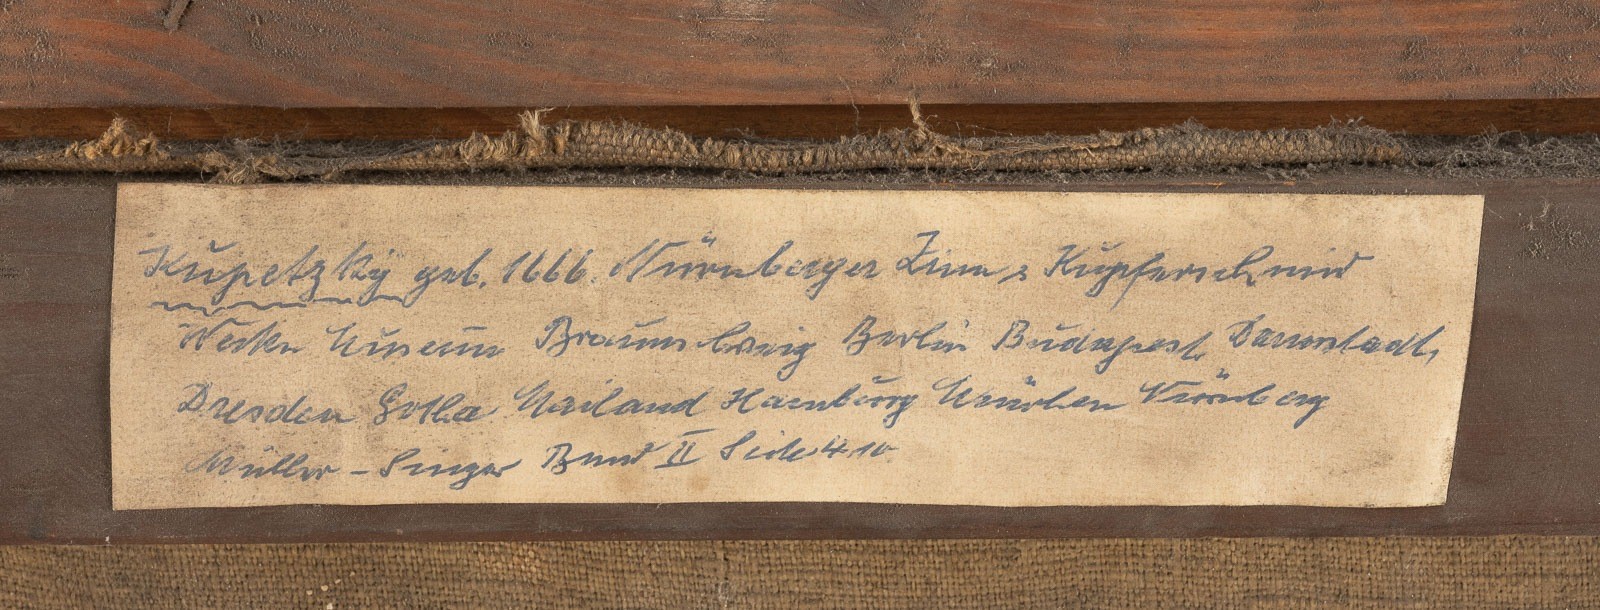 Kupetzky geb. 1666. Nürnberger Zinn & Kupferschmid
Werke Museum Braunschweig Berlin Budapest Darmstadt,
Dresden Gotha Mailand Hamburg München Nürnberg
Müller – Singer Band II Seite 410